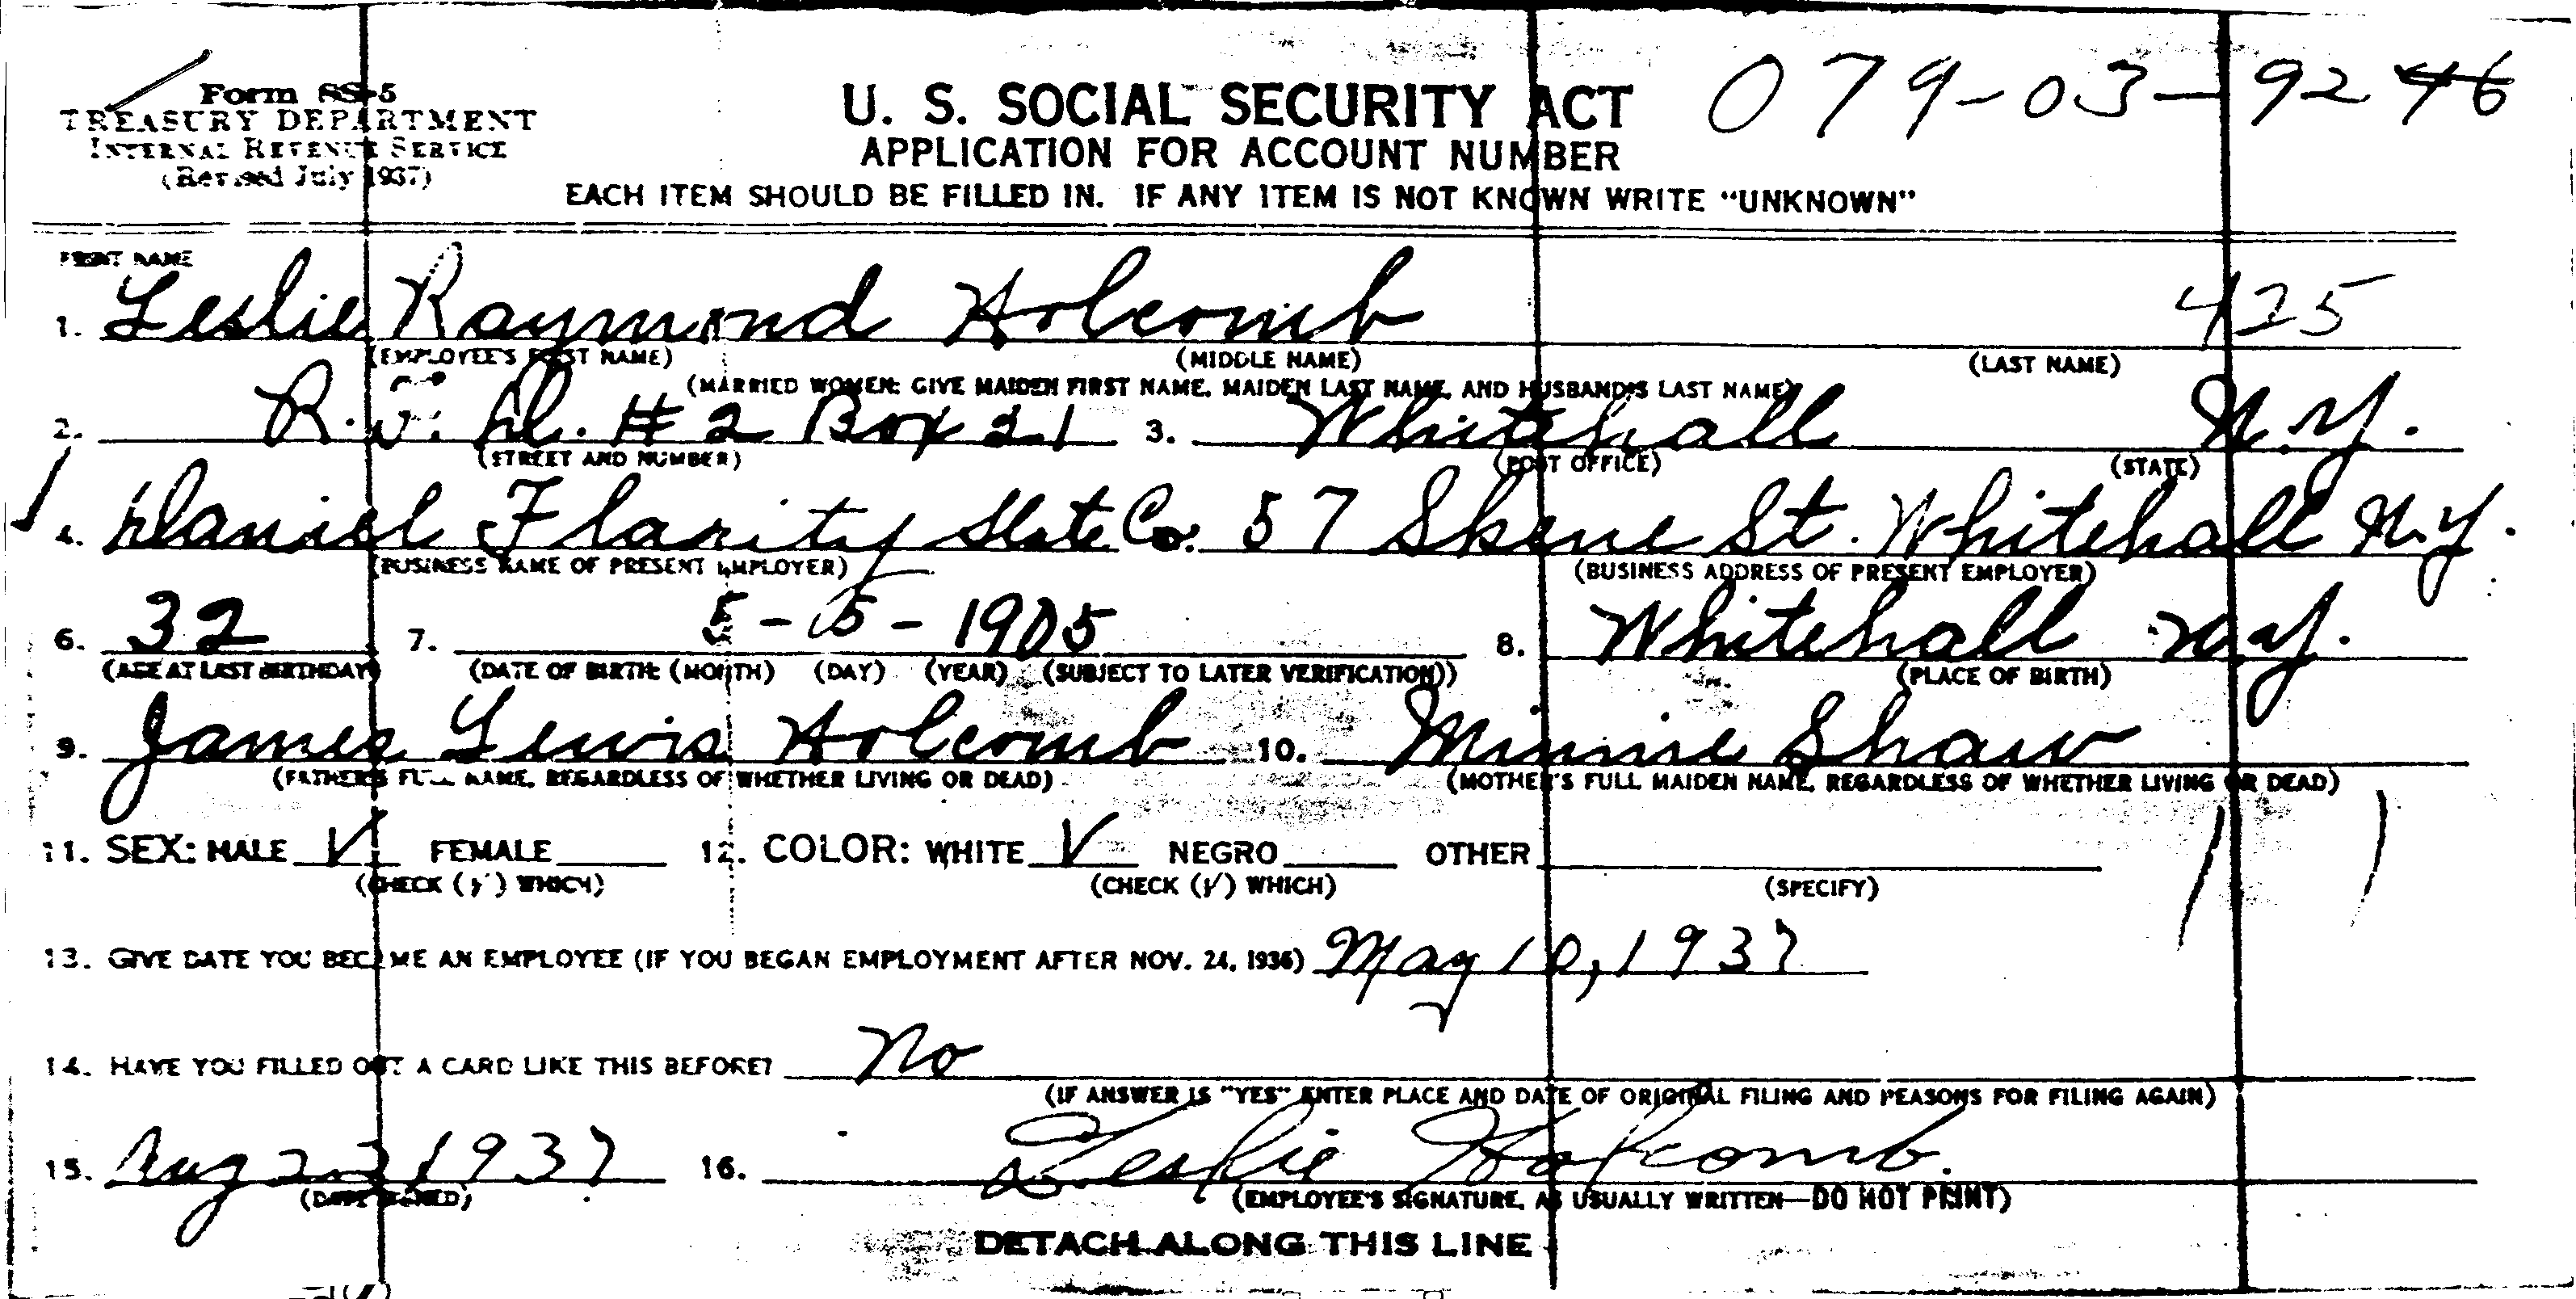 Form SS-5
TREASURY DEPARTMENT
INTERNAL REVENUE SERVICE
(Revised July 1937)
U. S. SOCIAL SECURITY ACT
APPLICATION FOR ACCOUNT NUMBER
EACH ITEM SHOULD BE FILLED IN. IF ANY ITEM IS NOT KNOWN WRITE "UNKNOWN"
079-03-9246
PRINT NAME
1. Leslie Raymond Holcomb 425
(EMPLOYEE'S FIRST NAME) (MIDDLE NAME) (LAST NAME)
(MARRIED WOMEN: GIVE MAIDEN FIRST NAME, MAIDEN LAST NAME, AND HUSBAND'S LAST NAME)
2. R.F.D. #2 Box 21 3. Whitehall N.Y.
(STREET AND NUMBER) (POST OFFICE) (STATE)
4. Daniel Flarity Slate Co. 57 Skene St. Whitehall N.Y.
(BUSINESS NAME OF PRESENT EMPLOYER) (BUSINESS ADDRESS OF PRESENT EMPLOYER)
6. 32 7. 5-15-1905 8. Whitehall N.Y.
(AGE AT LAST BIRTHDAY) (DATE OF BIRTH: (MONTH) (DAY) (YEAR) (SUBJECT TO LATER VERIFICATION)) (PLACE OF BIRTH)
9. James Lewis Holcomb 10. Minnie Shaw
(FATHER'S FULL NAME, REGARDLESS OF WHETHER LIVING OR DEAD) (MOTHER'S FULL MAIDEN NAME, REGARDLESS OF WHETHER LIVING OR DEAD)
11. SEX: MALE ✓ FEMALE 12. COLOR: WHITE ✓ NEGRO OTHER
(CHECK (✓) WHICH) (CHECK (✓) WHICH) (SPECIFY)
13. GIVE DATE YOU BECAME AN EMPLOYEE (IF YOU BEGAN EMPLOYMENT AFTER NOV. 24, 1936) May 10, 1937
14. HAVE YOU FILLED OUT A CARD LIKE THIS BEFORE? No
(IF ANSWER IS "YES" ENTER PLACE AND DATE OF ORIGINAL FILING AND REASONS FOR FILING AGAIN)
15. Aug 23 1937 16. Leslie Holcomb.
(DATE SIGNED) (EMPLOYEE'S SIGNATURE, AS USUALLY WRITTEN—DO NOT PRINT)
DETACH ALONG THIS LINE